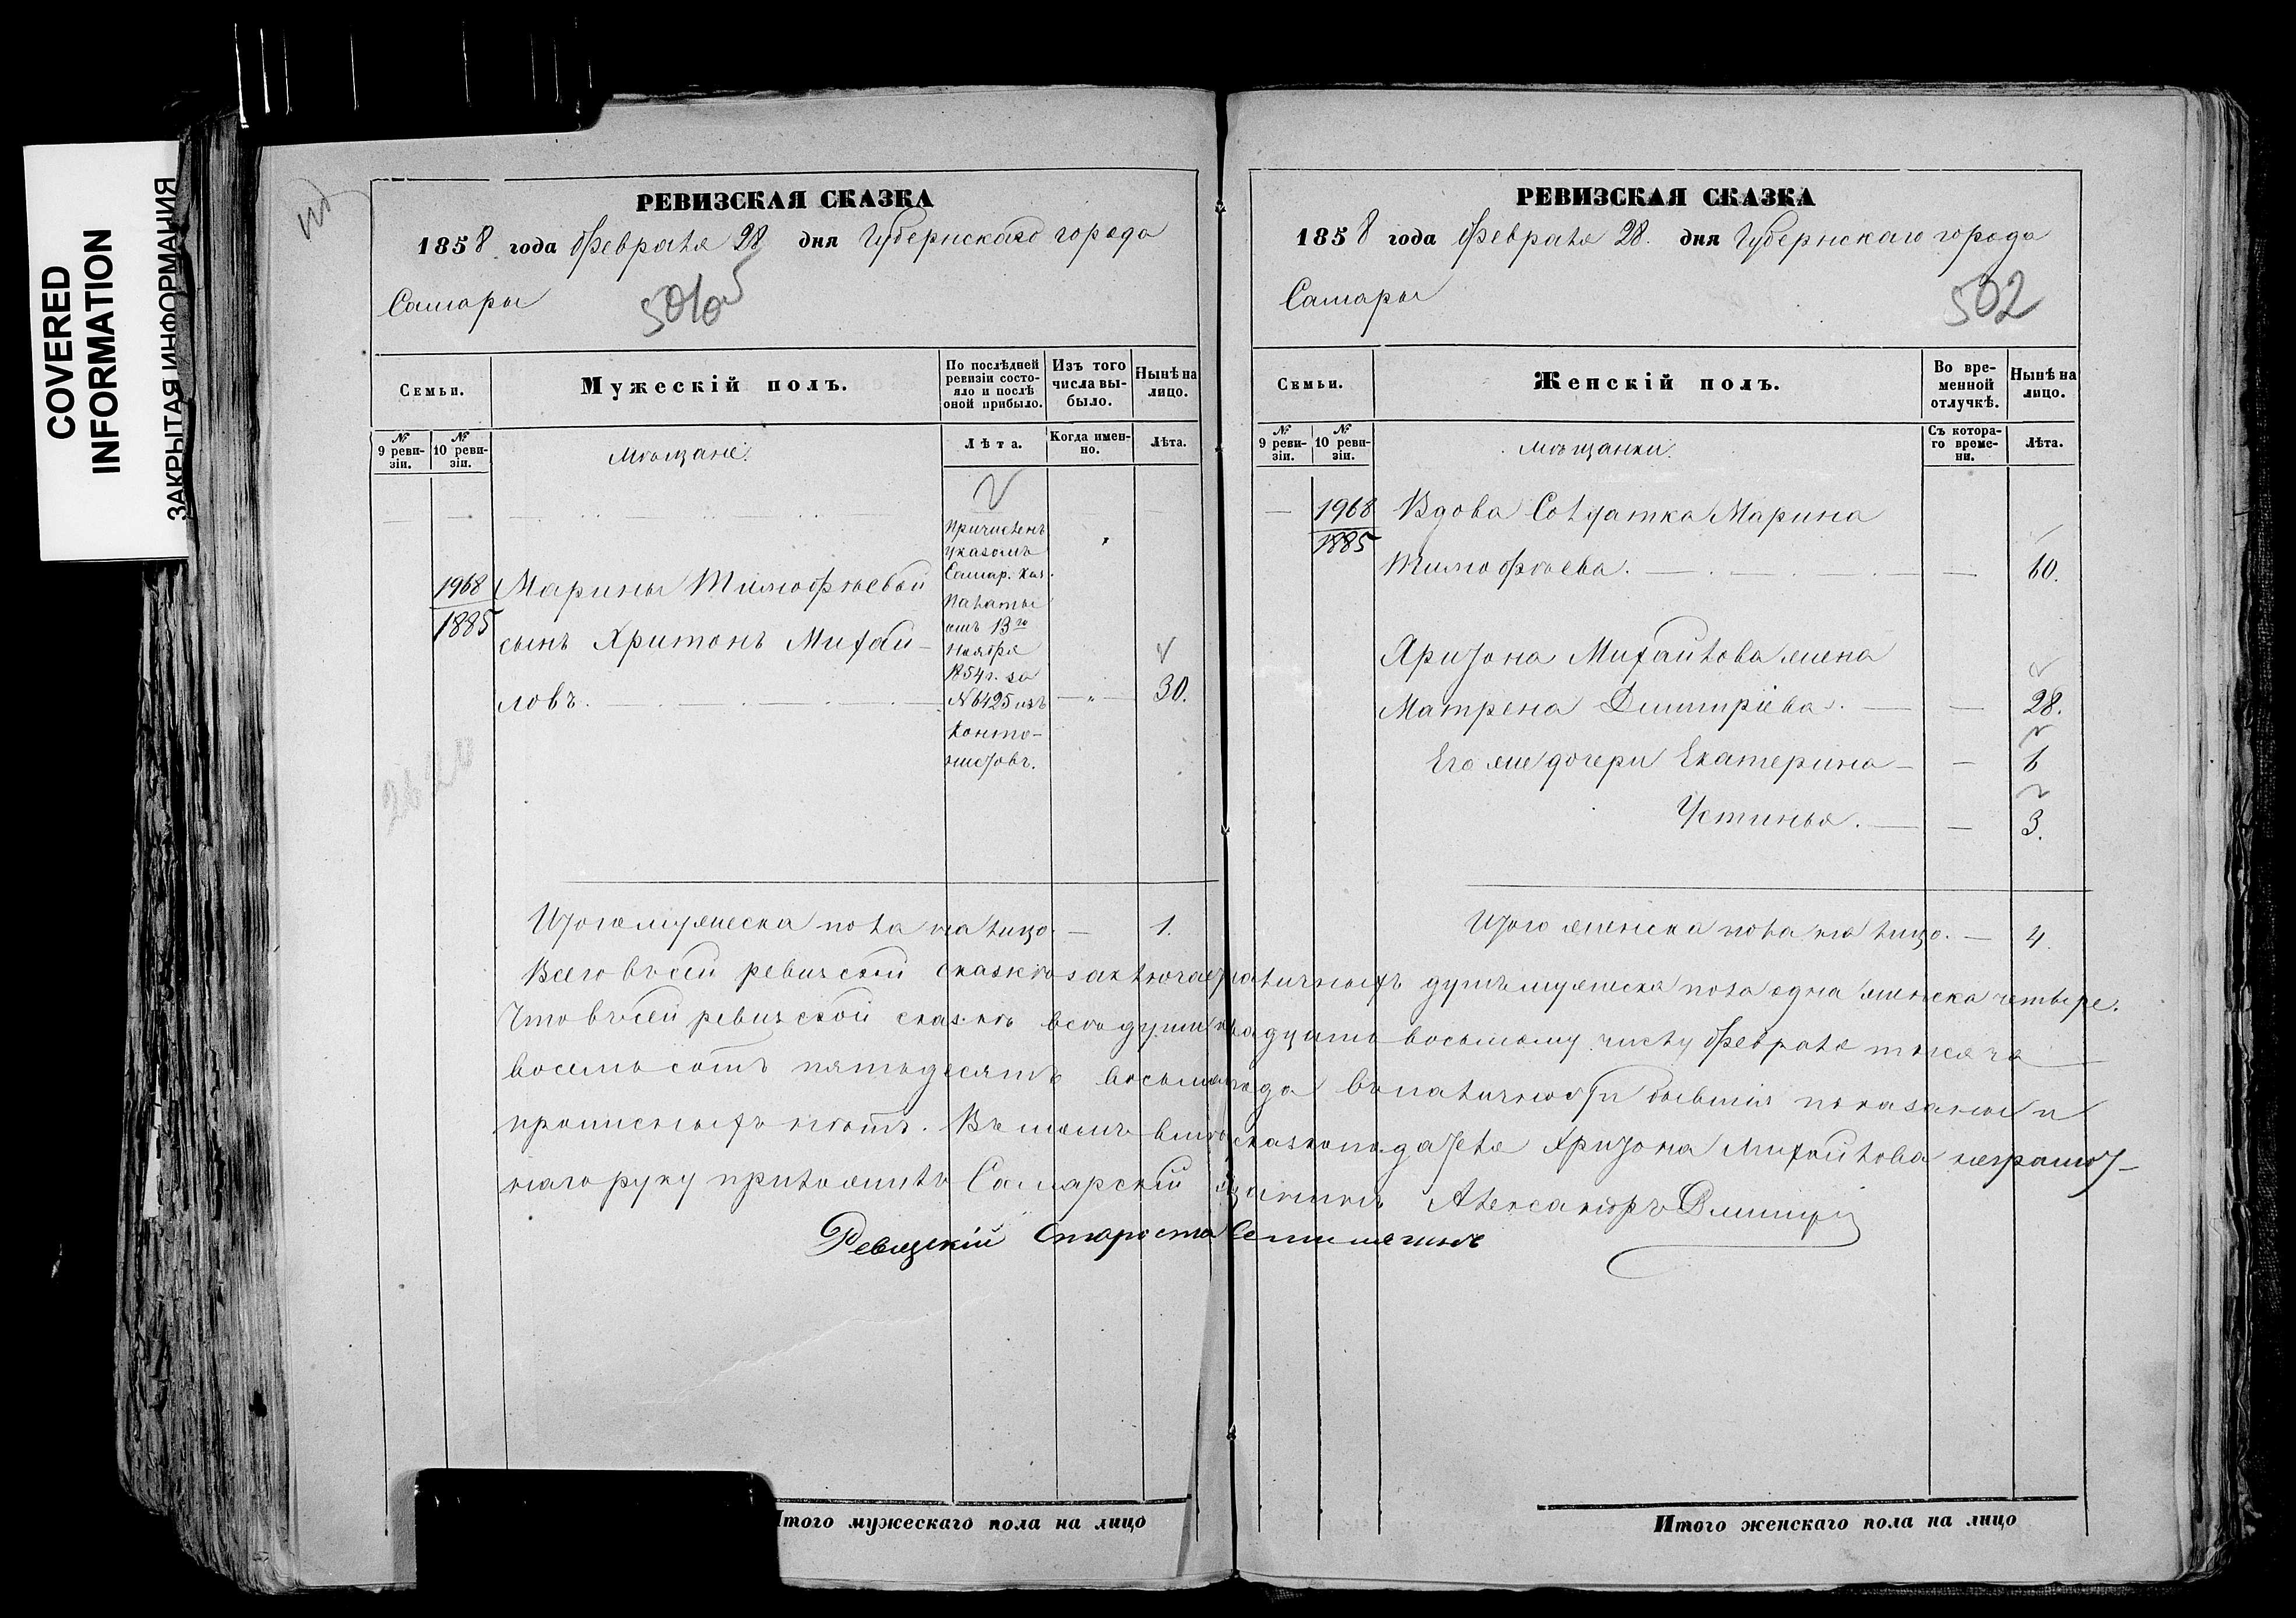 COVERED
INFORMATION
ЗАКРЫТАЯ ИНФОРМАЦИЯ
РЕВИЗСКАЯ СКАЗКА
1858 года Февраля 28 дня Губернскаго города
Самары
Семьи.
Мужескій полъ.
По послѣдней ревизіи состояло и послѣ оной прибыло.
Изъ того числа выбыло.
Нынѣ на лицо.
№ 9 ревизіи.
№ 10 ревизіи.
Мѣщане.
Лѣта.
Когда именно.
Лѣта.
Причисленъ
указомъ
Самар. Каз.
Палаты
отъ 13го
Ноября
1854 г. за
№ 6425 изъ
Канто-
нистовъ.
1968
1885
Марины Тимофѣевой
сынъ Харитонъ Михай-
ловъ.
30.
Итого мужеска пола на лицо. — 1.
РЕВИЗСКАЯ СКАЗКА
1858 года Февраля 28. дня Губернскаго города
Самары
502
Семьи.
Женскій полъ.
Во временной отлучкѣ.
Нынѣ на лицо.
№ 9 ревизіи.
№ 10 ревизіи.
Мѣщанки.
Съ котораго времени.
Лѣта.
1968
1885
Вдова Солдатка Марина
Тимофѣева. 60.
Харитона Михайлова жена
Матрена Дмитріева. 28.
Его же дочери Екатерина — 6
Устинья. — 3.
Итого женска пола на лицо. — 4.
Всего въ сей ревизской сказкѣ заключается наличныхъ душъ мужеска пола одна женска четыре.
Что въ сей ревизской сказкѣ всѣ души къ двадцать восьмому числу Февраля тысяча
восемьсотъ пятьдесятъ восьмаго года въ наличности бывшія показаны и
прописныхъ нѣтъ. Въ томъ вмѣсто сказкоподателя Харитона Михайлова неграмот-
наго руку приложилъ Самарскій мѣщанинъ Александръ
Ревизскій Староста
Итого мужескаго пола на лицо
Итого женскаго пола на лицо